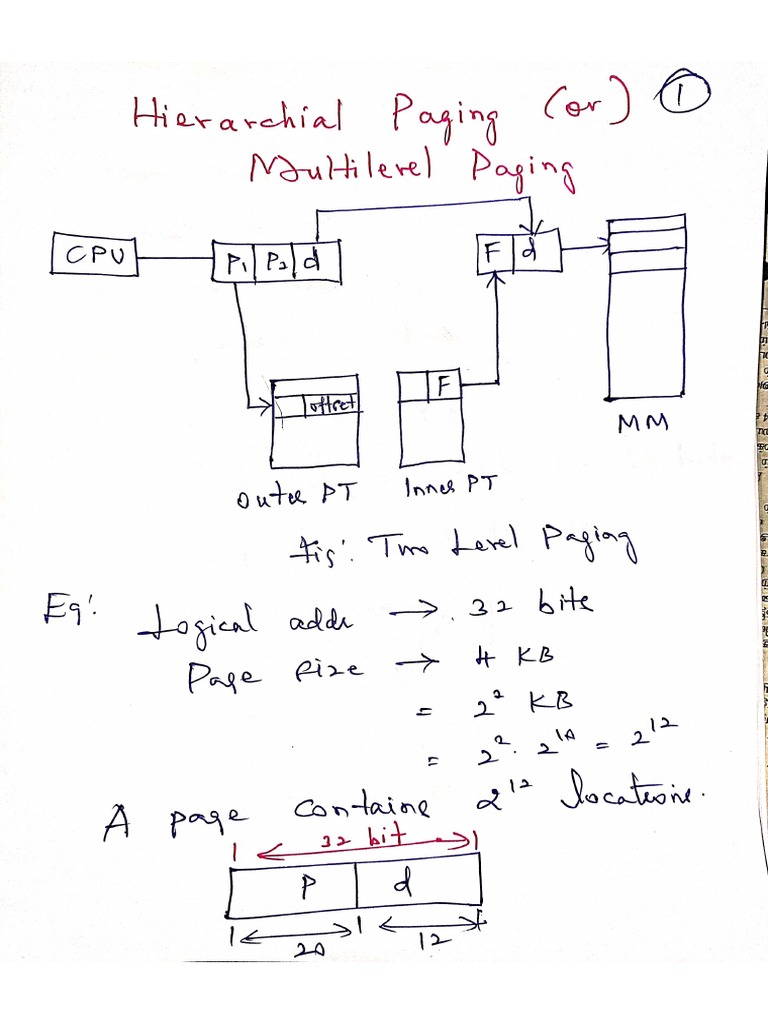 Hierarchial Paging (or) 1
Multilevel Paging
CPU
P1 P2 d
F d
offset
F
MM
Outer PT
Inner PT
fig: Two Level Paging
Eg: Logical addr → 32 bits
Page size → 4 KB
= 2² KB
= 2² · 2¹⁰ = 2¹²
A page contains 2¹² locations.
32 bit
P d
20 12